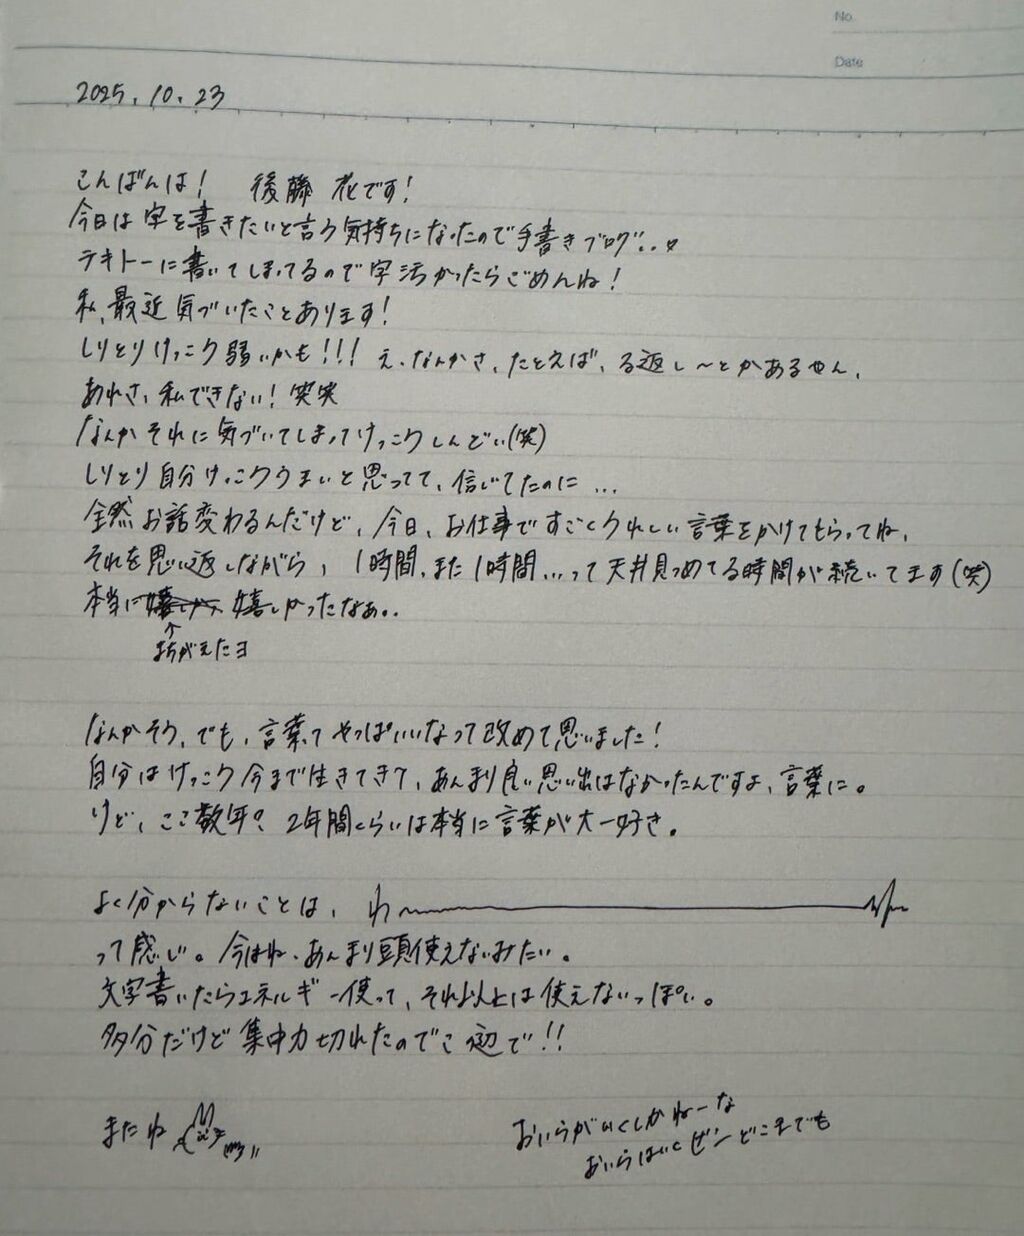 No.
Date
2025.10.23
こんばんは! 後藤 花です!
今日は字を書きたいと言う気持ちになったので手書きブログ..♡
テキトーに書いてしまってるので字汚かったらごめんね!
私、最近気づいたことあります!
しりとりけっこう弱いかも!!! え、なんかさ、たとえば、る返し〜とかあるやん、
あれさ、私できない! 笑笑
なんかそれに気づいてしまってけっこうしんどい(笑)
しりとり自分けっこううまいと思ってて、信じてたのに...
全然お話変わるんだけど、今日、お仕事ですごくうれしい言葉をかけてもらってね、
それを思い返しながら、1時間、また1時間...って天井見つめてる時間が続いてます(笑)
本当に 嬉しかったなぁ..
↑
まちがえたヨ
なんかそう、でも、言葉てやっぱいいなって改めて思いました!
自分はけっこう今まで生きてきて、あんまり良い思い出はなかったんですよ、言葉に。
けど、ここ数年? 2年間くらいは本当に言葉が大一好き。
よく分からないことは、
って感じ。今はね、あんまり頭使えないみたい。
文字書いたらエネルギー使って、それ以上は使えないっぽい。
多分だけど集中力切れたのでこ辺で!!
またね
おいらがいくしかねーな
おいらはいくぜンどこまでも